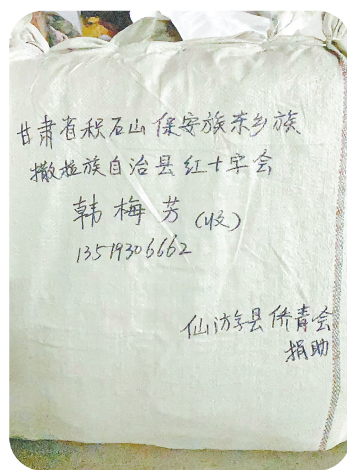 甘肃省积石山保安族东乡族
撒拉族自治县红十字会
韩梅芳(收)
13519306662
仙游县侨青会
捐助